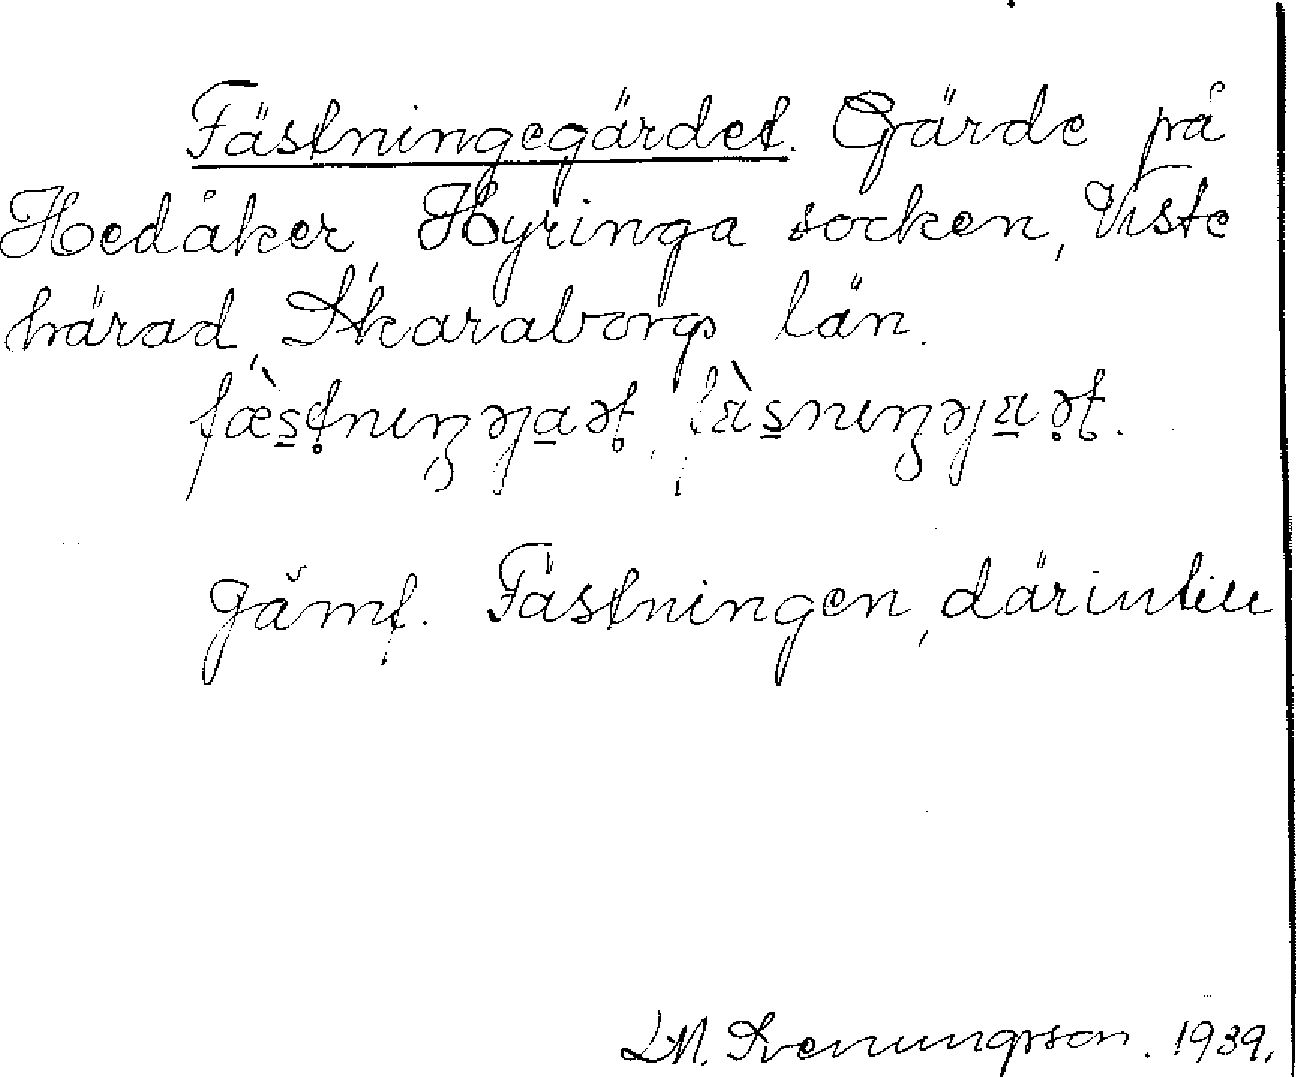 Fästningegärdet. Gärde på
Hedåker, Hyringa socken, Viste
härad, Skaraborgs län.
Jämf. Fästningen, därintill
L.M. Svenungsson. 1939.